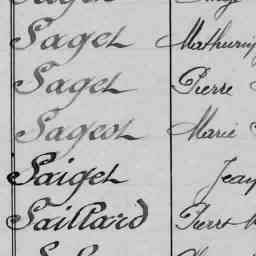 Saget Mathurin
Saget Pierre
Sageot Marie
Saiget Jean
Saillard Pierre